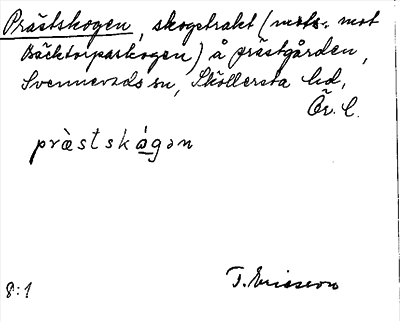 Prästskogen, skogstrakt (mots. mot
Bäcktorparkogen) å prästgården,
Svennevads sn, Sköllersta hd,
Ör. l.
pràstskágən
8:1
T. Ericsson